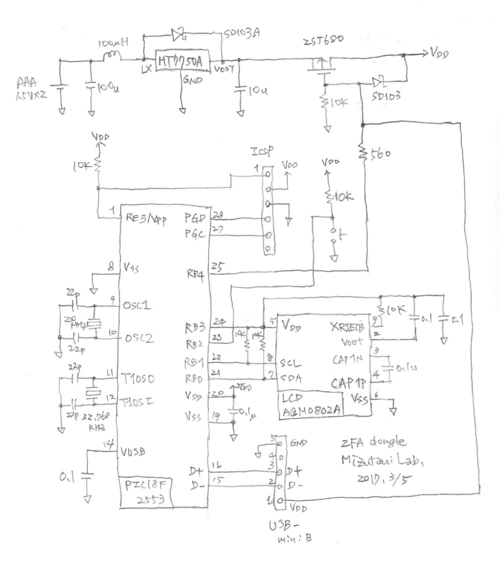 100μH
SD103A
2ST680
LX
MT7750A
VOUT
VDD
GND
AAA
1.5V×2
100μ
10μ
10k
SD103
VDD
10k
ICSP
1
VDD
VDD
10k
560
1
RE3/VPP
PGD
28
PGC
27
8
VSS
RB4
25
22p
9
OSC1
20
MHz
10
OSC2
22p
RB3
24
RB2
23
RB1
22
RB0
21
5
VDD
XRSETB
9
10K
0.1
0.1
VOUT
2
CAP1N
3
8
SCL
7
SDA
CAP1P
4
0.1μ
LCD
AQM0802A
VSS
6
22p
11
T1OSO
12
T1OSI
22p
32.768
KHz
VDD
20
VDD
0.1μ
VSS
19
14
VUSB
0.1
PIC18F
2553
D+
16
D-
15
5
GND
4
3
D+
2
D-
1
VDD
USB-
mini B
2FA dongle
Mizutani Lab,
2017, 3/5